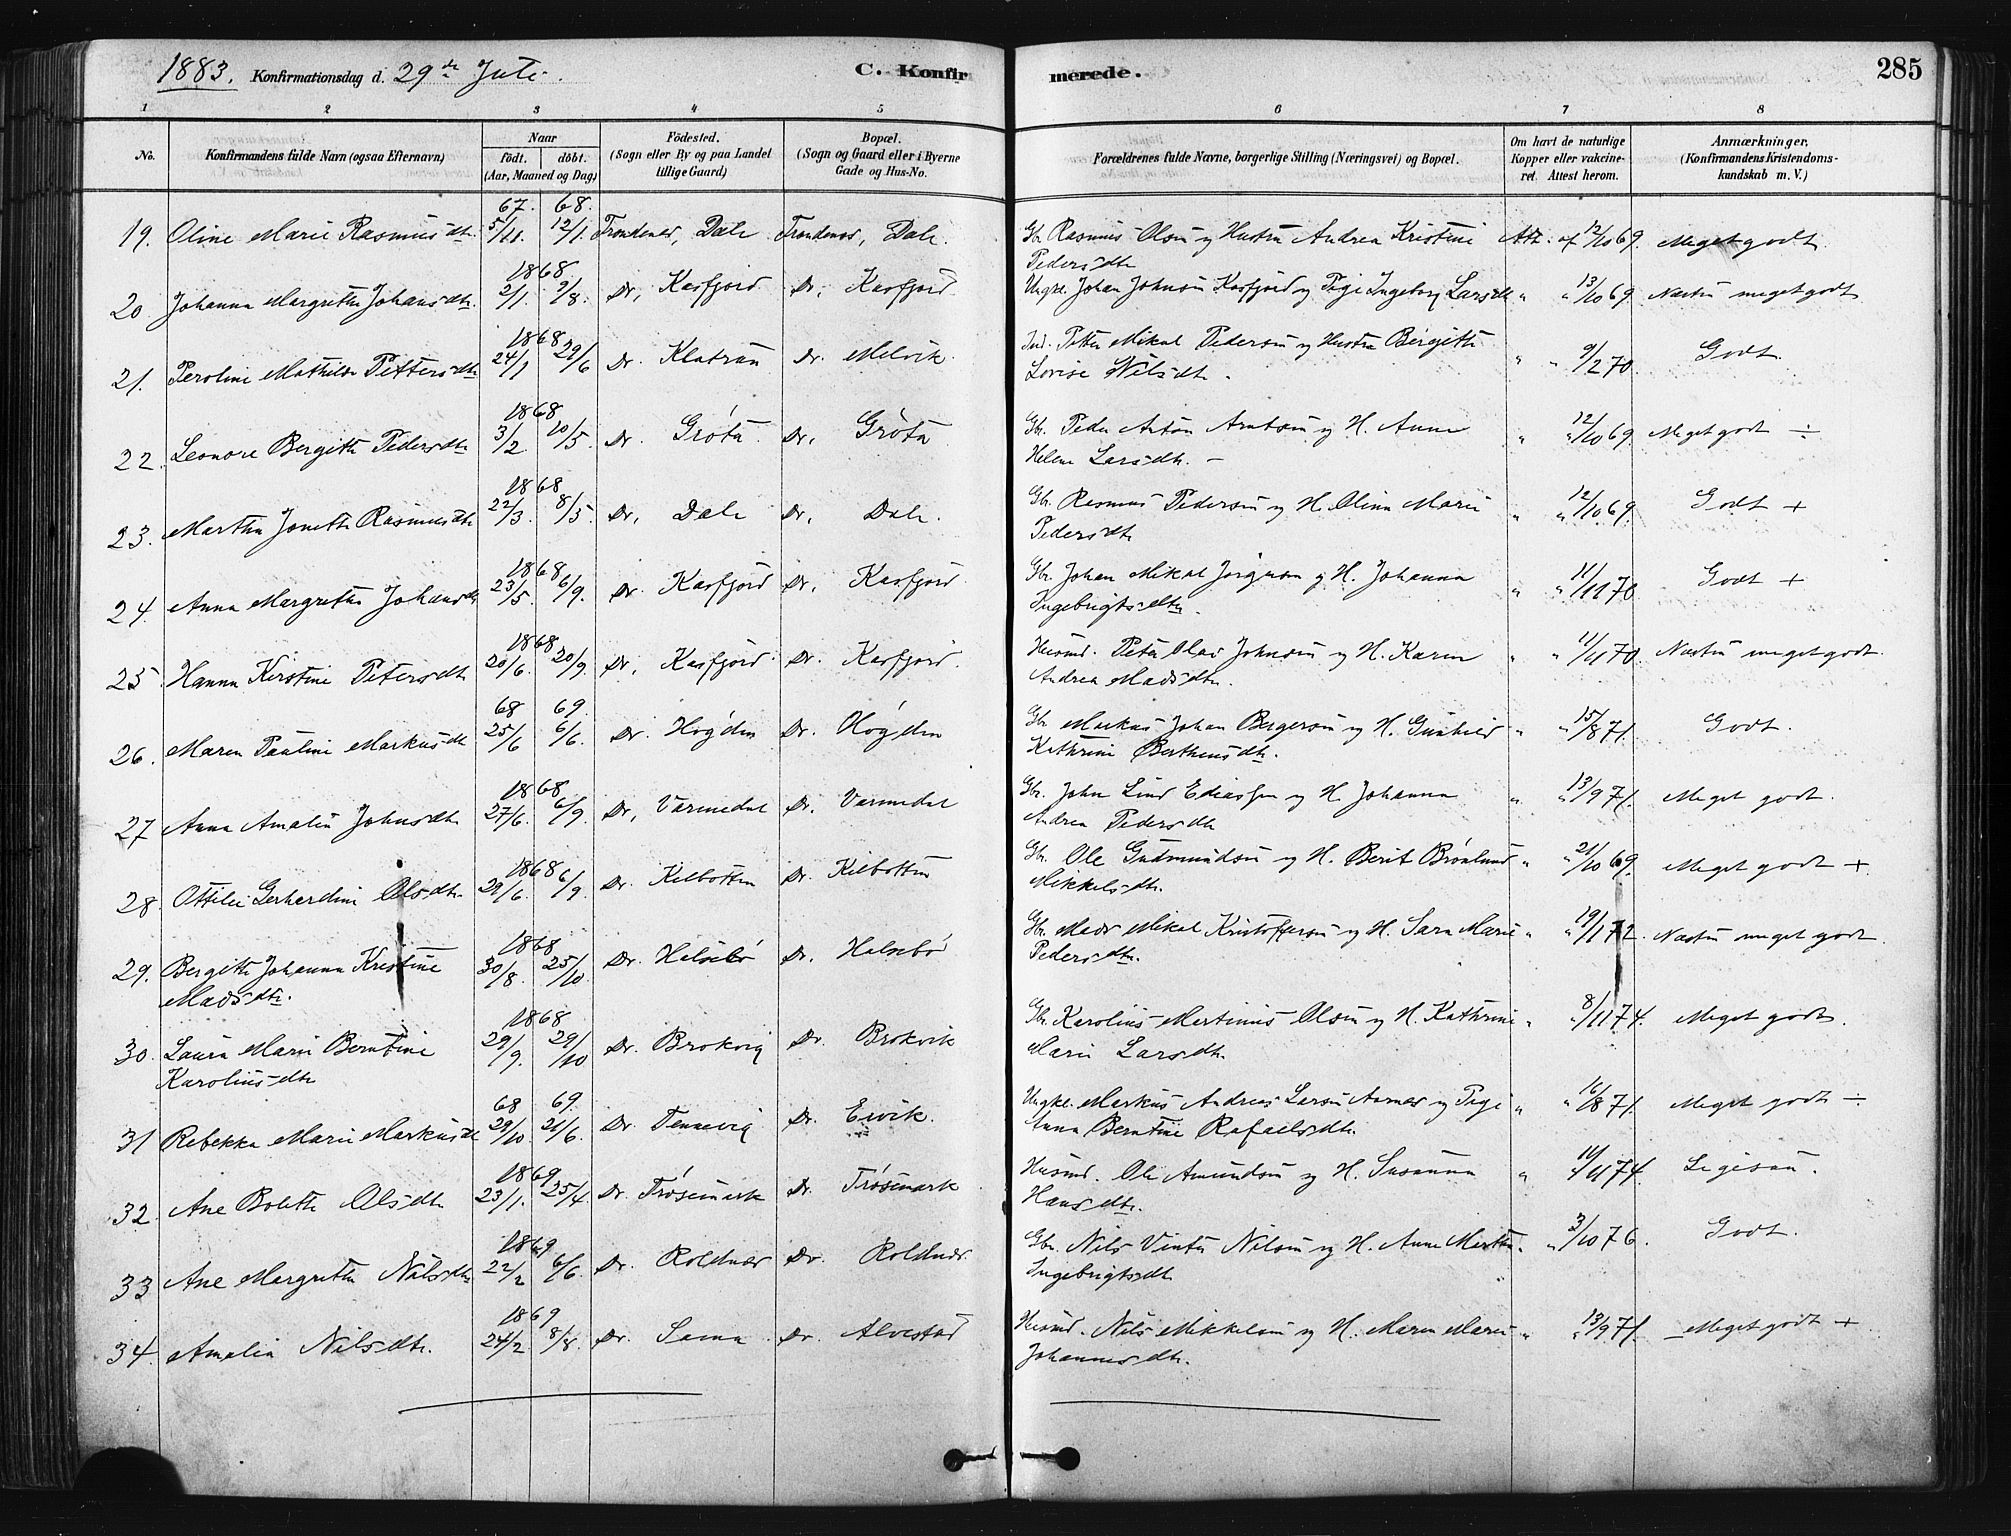 1883. Konfirmationsdag d. 29de Juli. C. Konfirmerede. 285
1 2 3 4 5 6 7 8
No. Konfirmandens fulde Navn (ogsaa Efternavn) Naar født. døbt. (Aar, Maaned og Dag) Fødested. (Sogn eller By og paa Landet tillige Gaard) Bopæl. (Sogn og Gaard eller i Byerne Gade og Hus-No. Forældrenes fulde Navne, borgerlige Stilling (Næringsvei) og Bopæl. Om havt de naturlige Kopper eller vakcineret. Attest herom. Anmærkninger, (Konfirmandens Kristendomskundskab m. V.)
67. 68.
19. Oline Marie Rasmusdtr. 5/11. 12/1. Trondenes, Dale Trondenes, Dale. Gbr. Rasmus Olsen og Hustru Andrea Kristine Att. af 12/10 69. Meget godt.
Pedersdtr
1868.
20. Johanna Margrethe Johansdtr. 2/1. 9/8. Do, Kasfjord Do, Kasfjord Ungkl. Johan Johnsen Kasfjord og Pige Ingeborg Larsdtr " " 13/10 69. Næsten meget godt
1868
21. Peroline Mathilde Pettersdtr 24/1 29/6 Do. Do. Melvik. Ind. Petter Mikal Pedersen og Hustru Bergitte " " 9/2 70. Godt.
Lovise Nilsdtr.
1868
22. Leonore Bergitte Pedersdtr 3/2. 10/5. Do. Grøta Do, Grøta Gbr. Peder Anton Arntsen og H. Anne " " 12/10 69. Meget godt ÷
Helene Larsdtr. –
1868
23. Martha Jonette Rasmusdtr 22/3. 8/5. Do, Dale Do, Dale. Gbr. Rasmus Pedersen og H. Olina Marie " " 12/10 69. Godt +
Pedersdtr
1868
24. Anna Margrethe Johansdtr 23/5. 6/9. Do. Kasfjord Do, Kasfjord Gbr. Johan Mikal Jørgensen og H. Johanna " " 11/11 70 Godt +
Ingebrigtsdtr.
1868
25. Hanna Kirstine Petersdtr 20/6. 20/9. Do, Kasfjord. Do. Kasfjord. Husmd. Peter Olav Johnsen og H. Karen " " 11/11 70. Næsten meget godt.
Andrea Madsdtr.
68 69.
26. Maren Pauline Markusdtr 25/6 6/6. Do. Høgden Do. Høgden Gbr. Markus Johan Bergersen og H. Gunhild " " 15/8 71. Godt.
Kathrine Berthensdtr.
1868
27 Anna Amalia Johnsdtr 27/6. 6/9. Do, Varmedal Do. Varmedal Gbr. John Lind Ediassen og H. Johanna " " 13/9 71. Meget godt.
Andrea Pedersdtr
1868
28. Ottilie Gerhardine Olsdtr. 29/6. 6/9. Do. Kilbotten Do. Kilbotten Gbr. Ole Gudmundsen og H. Berit Brønlund " " 21/10 69. Meget godt +
Mikkelsdtr.
1868
29. Bergitte Johanna Kristine 30/8. 25/10. Do. Halsebø Do. Halsebø Gbr. Mads Mikal Kristoffersen og H. Sara Marie " " 19/1 72. Næsten meget godt.
Madsdtr. Pedersdtr.
1868
30. Laura Marie Berntine 29/9. 29/10 Do. Brokvig Do. Brokvik Gbr. Karolius Martinus Olsen og H. Kathrine " " 8/11 74. Meget godt.
Karoliusdtr Marie Larsdtr.
68 69.
31 Rebekka Marie Markusdtr 29/10. 21/6. Do. Tennevig Do. Ervik. Ungkl. Markus Andreas Larsen Aarnes og Pige " " 16/8 71. Meget godt ÷
Anna Berntine Rafaelsdtr.
1869
32. Ane Bolette Olsdtr 23/1. 25/4 Do. Trøsemark Do. Trøsemark Husmd. Ole Amundsen og H. Susanna " 11/11 74. Ligesaa.
Hansdtr.
1869
33 Ane Margrethe Nilsdtr 22/2 6/6. Do. Roldnes Do. Roldnes. Gbr. Nils Vinter Nilsen og H. Anne Martha " " 3/10 76. Godt.
Ingebrigtsdtr
1869
34. Amalia Nilsdtr. 24/2. 8/8. Do. Sama Do. Alvestad Husmd. Nils Mikkelsen og H. Maren Marie " " 13/9 71. Meget godt +
Johannesdtr.